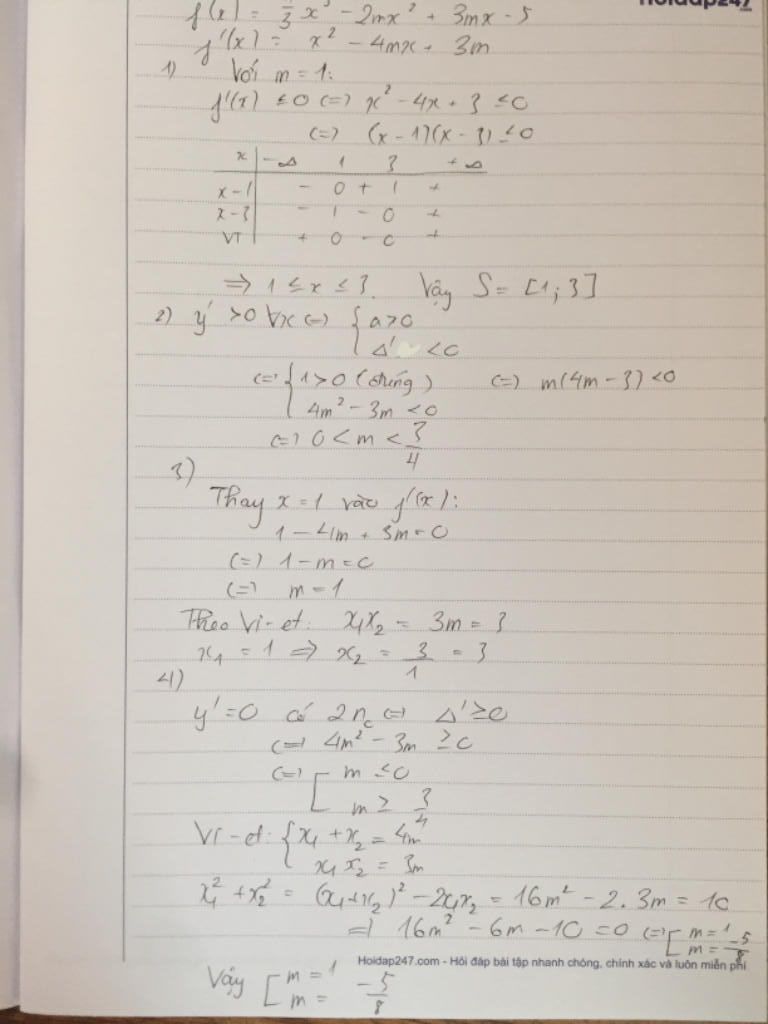 Hoidap247
f(x) = 1/3 x³ - 2mx² + 3mx - 5
f'(x) = x² - 4mx + 3m
1) Với m = 1:
f'(x) ≤ 0 (=) x² - 4x + 3 ≤ 0
(=) (x - 1)(x - 3) ≤ 0
x | -∞ 1 3 +∞
x - 1 | - 0 + | +
x - 3 | - | - 0 +
VT | + 0 - 0 +
=> 1 ≤ x ≤ 3. Vậy S = [1; 3]
2) y' > 0 ∀x (=) { a > 0
Δ' < 0
(=) { 1 > 0 (đúng) (=) m(4m - 3) < 0
4m² - 3m < 0
(=) 0 < m < 3/4
3)
Thay x = 1 vào f'(x):
1 - 4m + 3m = 0
(=) 1 - m = 0
(=) m = 1
Theo Vi-et: x₁x₂ = 3m = 3
x₁ = 1 => x₂ = 3/1 = 3
4)
y' = 0 có 2 nο (=) Δ' ≥ 0
(=) 4m² - 3m ≥ 0
(=) [ m ≤ 0
m ≥ 3/4
Vi-et: { x₁ + x₂ = 4m
x₁x₂ = 3m
x₁² + x₂² = (x₁+x₂)² - 2x₁x₂ = 16m² - 2.3m = 10
=> 16m² - 6m - 10 = 0 (=) [ m = 1
m = -5/8
Hoidap247.com - Hỏi đáp bài tập nhanh chóng, chính xác và luôn miễn phí
Vậy [ m = 1
m = -5/8